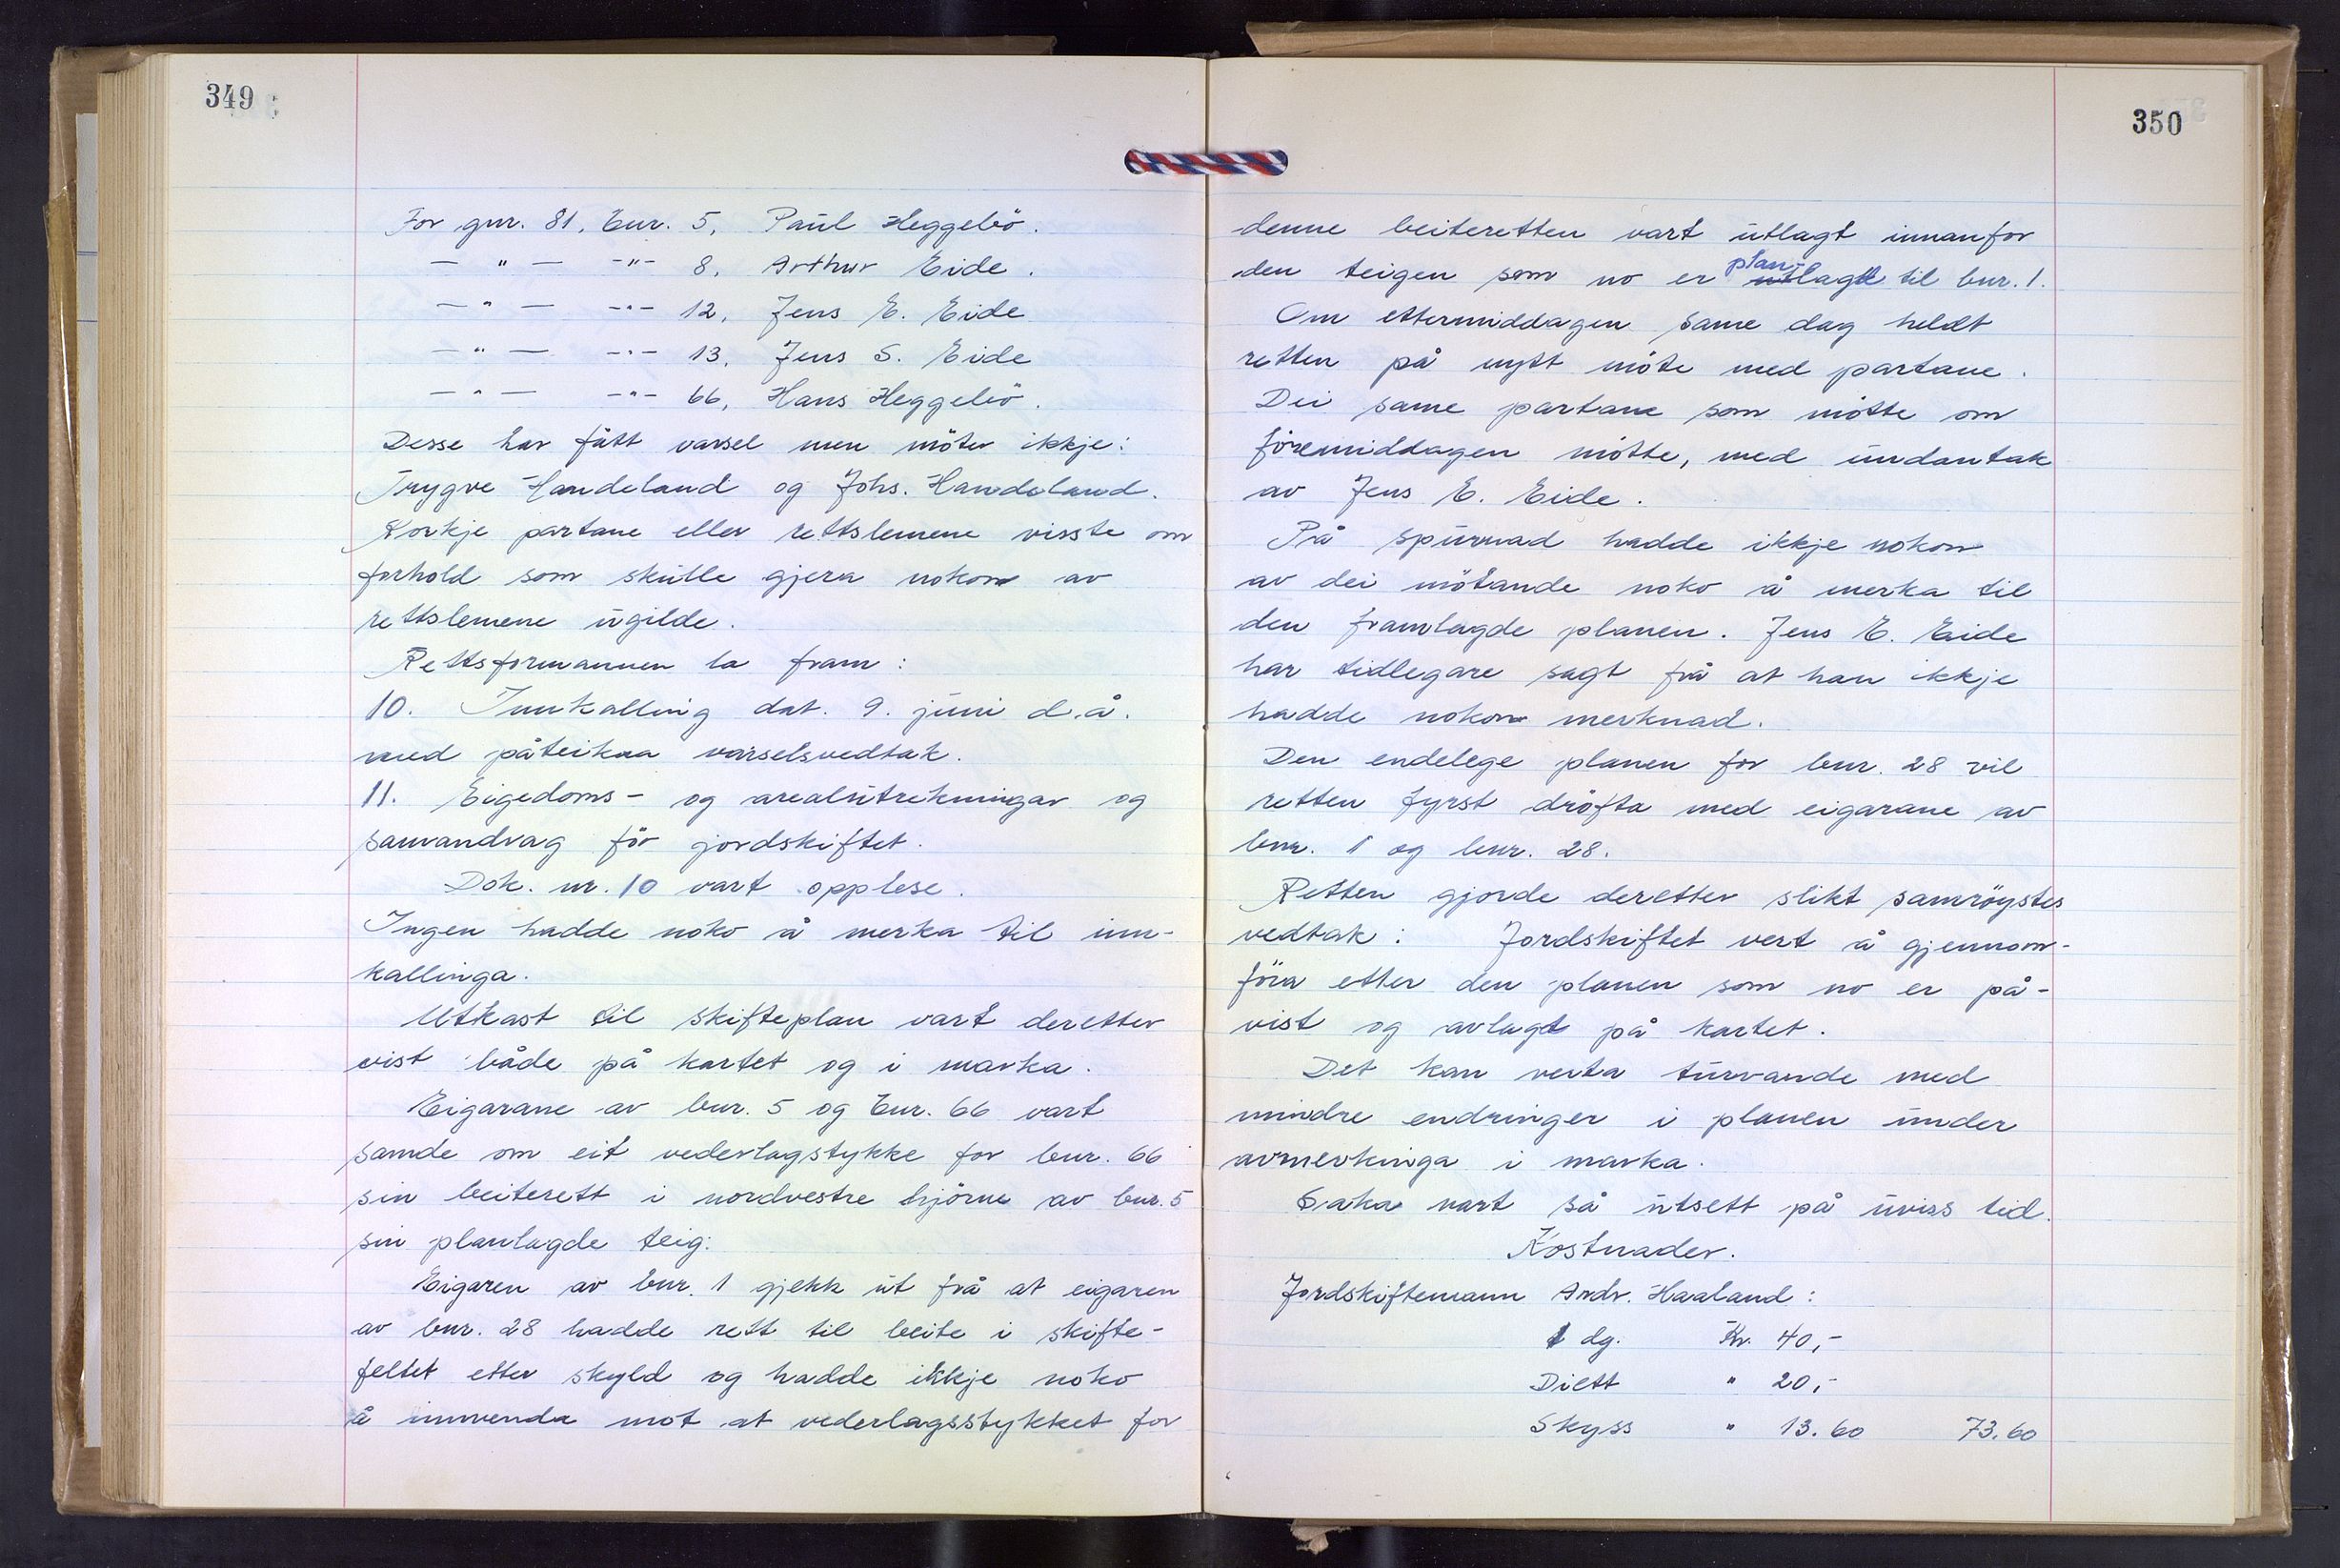 349
For gnr. 81, bnr. 5, Paul Heggebö.
— " — -"- 8, Arthur Eide.
— " — -"- 12, Jens E. Eide
— " — -"- 13, Jens S. Eide
— " — -"- 66, Hans Heggebö.
Desse har fått varsel men möter ikkje:
Trygve Handeland og Johs. Handeland.
Korkje partane eller rettslemene visste om
forhold som skulle gjera nokon av
rettslemene ugilde.
Rettsformannen la fram:
10. Innkalling dat. 9. juni d.å.
med påteikna varselsvedtak.
11. Eigedoms- og arealutrekningar og
samandrag för jordskiftet.
Dok. nr. 10 vart opplese.
Ingen hadde noko å merka til inn-
kallinga.
Utkast til skifteplan vart deretter
vist både på kartet og i marka.
Eigarane av bnr. 5 og bnr. 66 vart
samde om eit vederlagstykke for bnr. 66
sin beiterett i nordvestre hjörne av bnr. 5
sin planlagde teig.
Eigaren av bnr. 1 gjekk ut frå at eigaren
av bnr. 28 hadde rett til beite i skifte-
feltet etter skyld og hadde ikkje noko
å innvenda mot at vederlagsstykket for
350
denne beiteretten vart utlagt innanfor
den teigen som no er planlagt til bnr. 1.
Om ettermiddagen same dag heldt
retten på nytt möte med partane.
Dei same partane som mötte om
föremiddagen mötte, med undantak
av Jens E. Eide.
På spurnad hadde ikkje nokon
av dei mötande noko å merka til
den framlagde planen. Jens E. Eide
har tidlegare sagt frå at han ikkje
hadde nokon merknad.
Den endelege planen for bnr. 28 vil
retten fyrst dröfta med eigarane av
bnr. 1 og bnr. 28.
Retten gjorde deretter slikt samröystes
vedtak: Jordskiftet vert å gjennom-
föra etter den planen som no er på-
vist og avlagt på kartet.
Det kan verta turvande med
mindre endringer i planen under
avmerkinga i marka.
Saka vart så utsett på uviss tid.
Kostnader.
Jordskiftemann Andr. Haaland:
1 dg. Kr. 40,-
Diett " 20,-
Skyss " 13.60 73.60